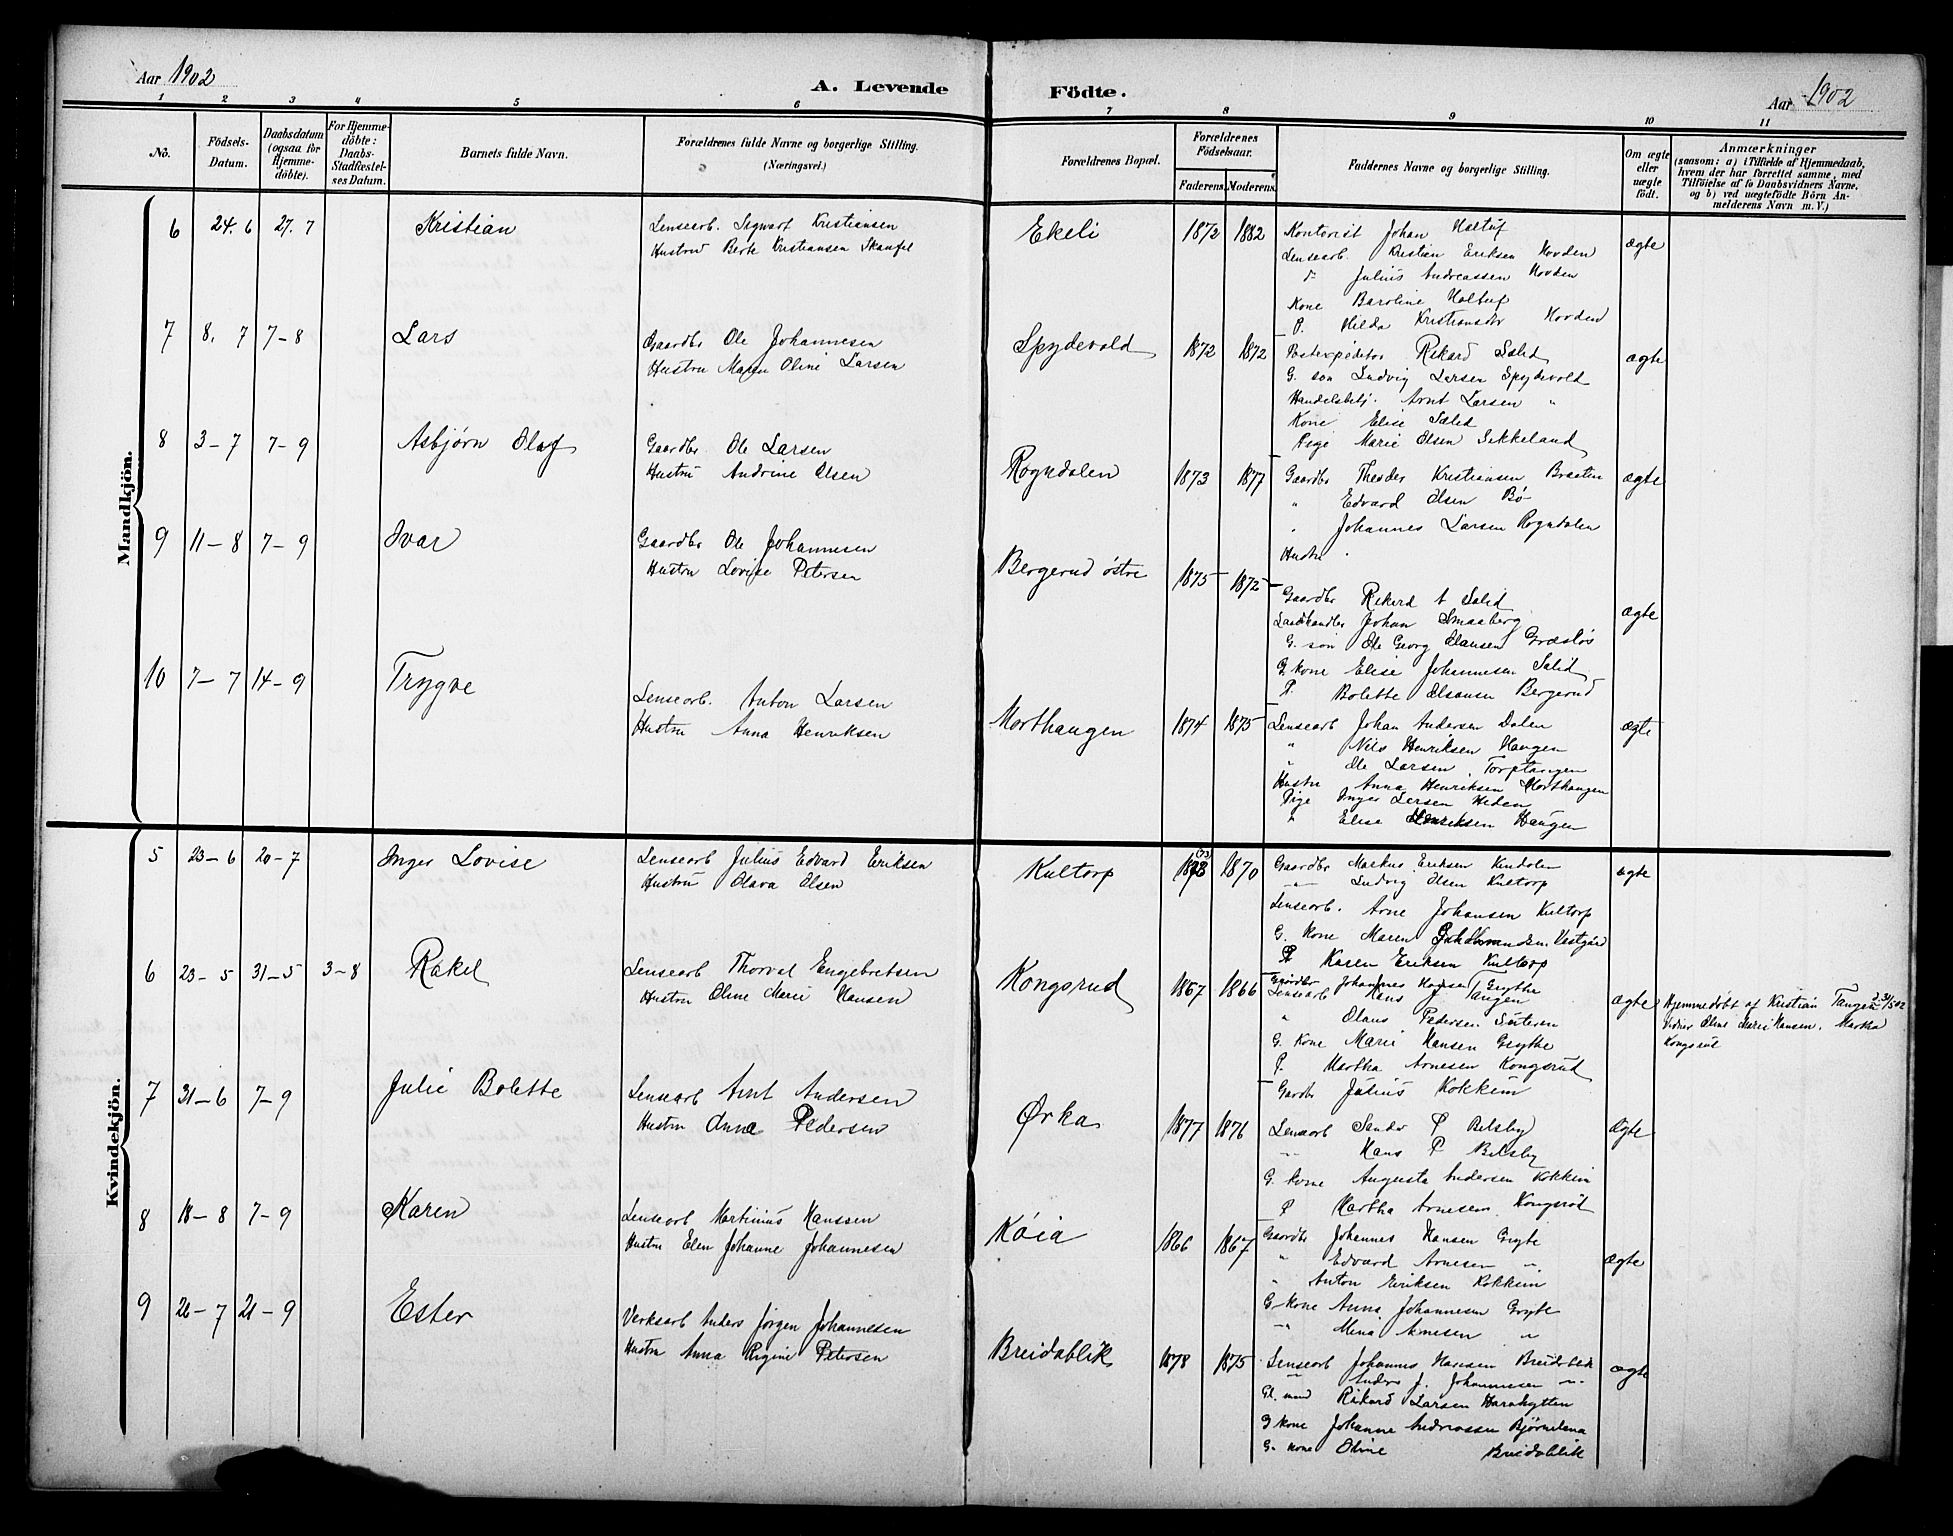 Aar 1902
A. Levende Födte.
Aar 1902
1 2 3 4 5 6 7 8 9 10 11
No.
Födsels-Datum.
Daabsdatum (ogsaa for Hjemme-döbte).
For Hjemme-döbte: Daabs-Stadfæstel-ses Datum.
Barnets fulde Navn.
Forældrenes fulde Navne og borgerlige Stilling. (Næringsvei.)
Forældrenes Bopæl.
Forældrenes Födselsaar.
Faderens. Moderens.
Faddernes Navne og borgerlige Stilling.
Om ægte eller uægte födt.
Anmærkninger
(saasom: a) i Tilfælde af Hjemmedaab,
hvem der har forrettet samme, med
Tilföielse af to Daabsvidners Navne,
og b) ved uægtefödte Börn An-
melderens Navn m. V.)
Mandkjön.
6 24. 6 27. 7 Kristian
Lensearb. Sigvart Kristiansen
Hustru Berte Kristiansen
Ekeli 1872 1882
Kontorist Johan
Lensearb. Kristian Eriksen Hovden
Julius Andreassen Hovden
Kone Baroline
P. Hilda Kristiansdtr Hovden
ægte
7 8. 7 7-8 Lars
Gaardbr Ole Johannesen
Hustru Maren Oline Larsen
Spydevold 1872 1872
Postexpeditør Rikard
G. søn Ludvig Larsen Spydevold
Handelsbetj. Arnt Larsen "
Kone Elise
Pige Marie Olsen Sikkeland
ægte
8 3-7 7-9 Asbjørn Olaf
Gaardbr Ole Larsen
Hustru Andrine Olsen
Rogndalen 1873 1877
Gaardbr Theodor Kristiansen Braaten
" Edvard Olsen Bø
" Johannes Larsen Rogndalen
Hustru
ægte
9 11-8 7-9 Ivar
Gaardbr Ole Johannesen
Hustru Lovise Petersen
Bergerud østre 1875 1872
Gaardbr Rikard
Landhandler Johan Smaaberg
G. søn Ole Georg Olausen
G. kone Elise Johannesen
P. Bolette Bergerud
ægte
10 7-7 14-9 Trygve
Lensearb. Anton Larsen
Hustru Anna Henriksen
Morthaugen 1874 1875
Lensearb Johan Andersen Dalen
" Nils Henriksen Haugen
" Ole Larsen Torptangen
Hustru Anna Henriksen Morthaugen
Pige Inger Larsen Heden
" Elise Henriksen Haugen
ægte
Kvindekjön.
5 23-6 20-7 Inger Lovise
Lensearb Julius Edvard Eriksen
Hustru Olava Olsen
Kultorp 1873 1870
Gaardbr Markus Eriksen
" Ludvig Olsen Kultorp
Lensearb. Arne Johansen Kultorp
G. Kone Maren Vestgård
P Karen Eriksen Kultorp
ægte
6 23-5 31-5 3-8 Rakel
Lensearb Thorval Engebretsen
Hustru Oline Marie Hansen
Kongsrud 1867 1866
Gaardbr Johannes Hansen Grytte
Lensearb Hans J Tangen
" Olaus Pedersen Sæteren
G. Kone Marie Hansen Grytte
P. Martha Arnesen Kongsrud
ægte
Hjemmedøbt af Kristian Tangen d. 31/5 02
Vidner Oline Marie Hansen, Martha
Kongsrud
7 31-6 7-9 Julie Bolette
Lensearb Arnt Andersen
Hustru Anna Pedersen
Ørka 1877 1876
Gaardbr Julius Kokkim
Lensearb Sander P Belsby
" Hans P Belsby
G. kone Augusta Andersen Kokkim
P Martha Arnesen Kongsrød
Ægte
8 18-8 7-9 Karen
Lensearb Martinius Hanssen
Hustru Elen Johanne Johannesen
Køia 1866 1867
Gaardbr Johannes Hansen Gryte
" Edvard Arnesen "
" Anton Eriksen Kokkim
G-kone Anna Johannesen Gryte
" Mina Arnesen "
ægte
9 26-7 21-9 Ester
Verksarb Anders Jørgen Johannesen
Hustru Anna Regine Petersen
Breidablik 1878 1875
Lensearb Johannes Hansen Breidablik
" Anders J. Johannesen "
Gl. mand Rikard Larsen Harahytten
G kone Johanne Andreassen
G. kone Oline Breidablik
ægte